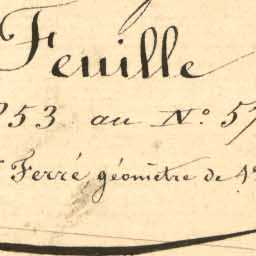 Feuille
953 au N° 57
Ferré, géomètre de 1